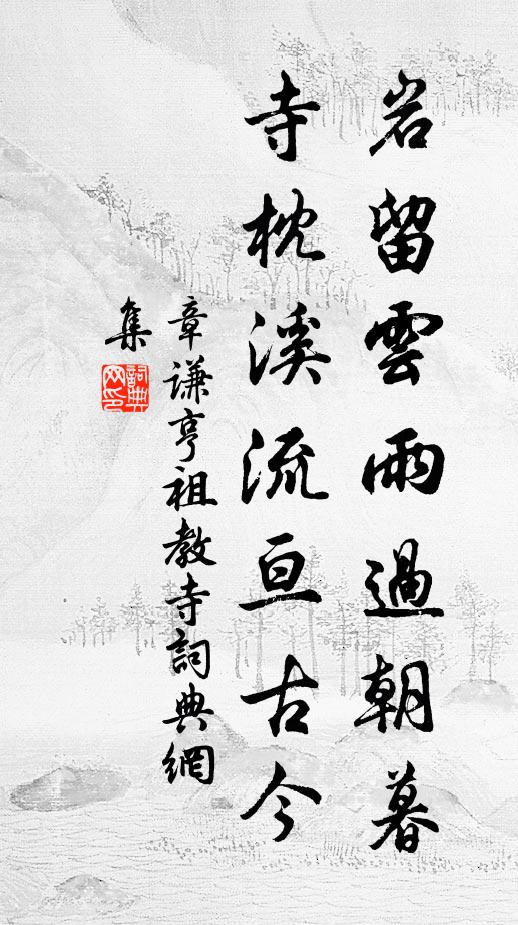 岩留雲雨過朝暮
寺枕溪流亘古今
章謙亨祖教寺詞典網
集
詞典
网印